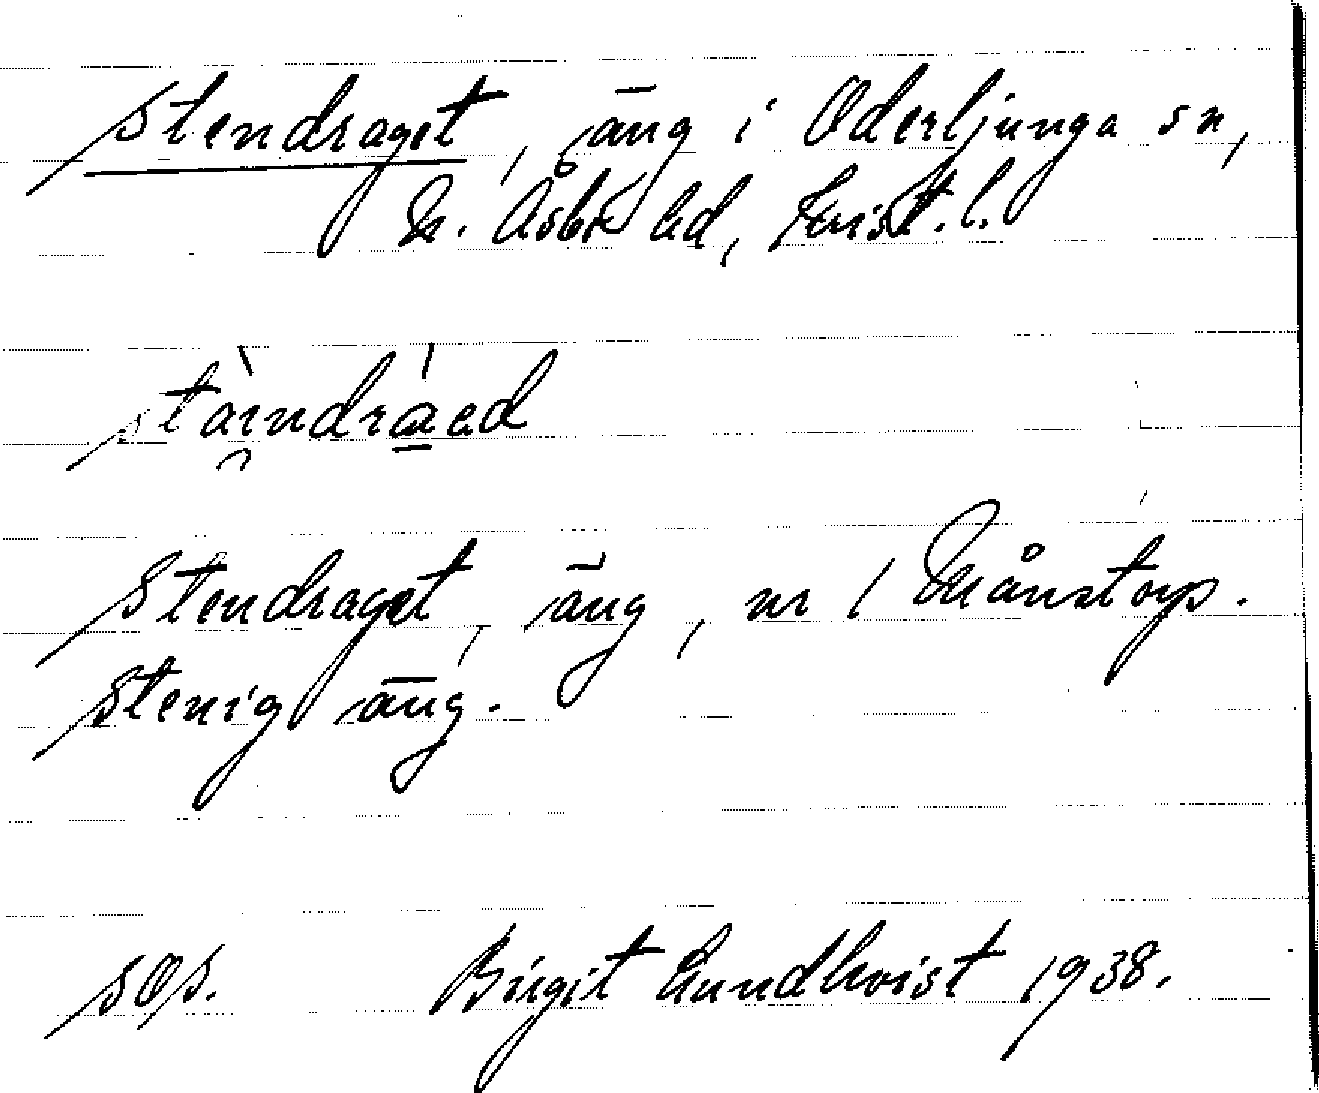 Stendraget, äng i Oderljunga sn,
N. Åsbo hd, Krist. l.
Stendraget, äng, nr 1 Månstorp.
Stenig äng.
Birgit Lundkvist 1938.